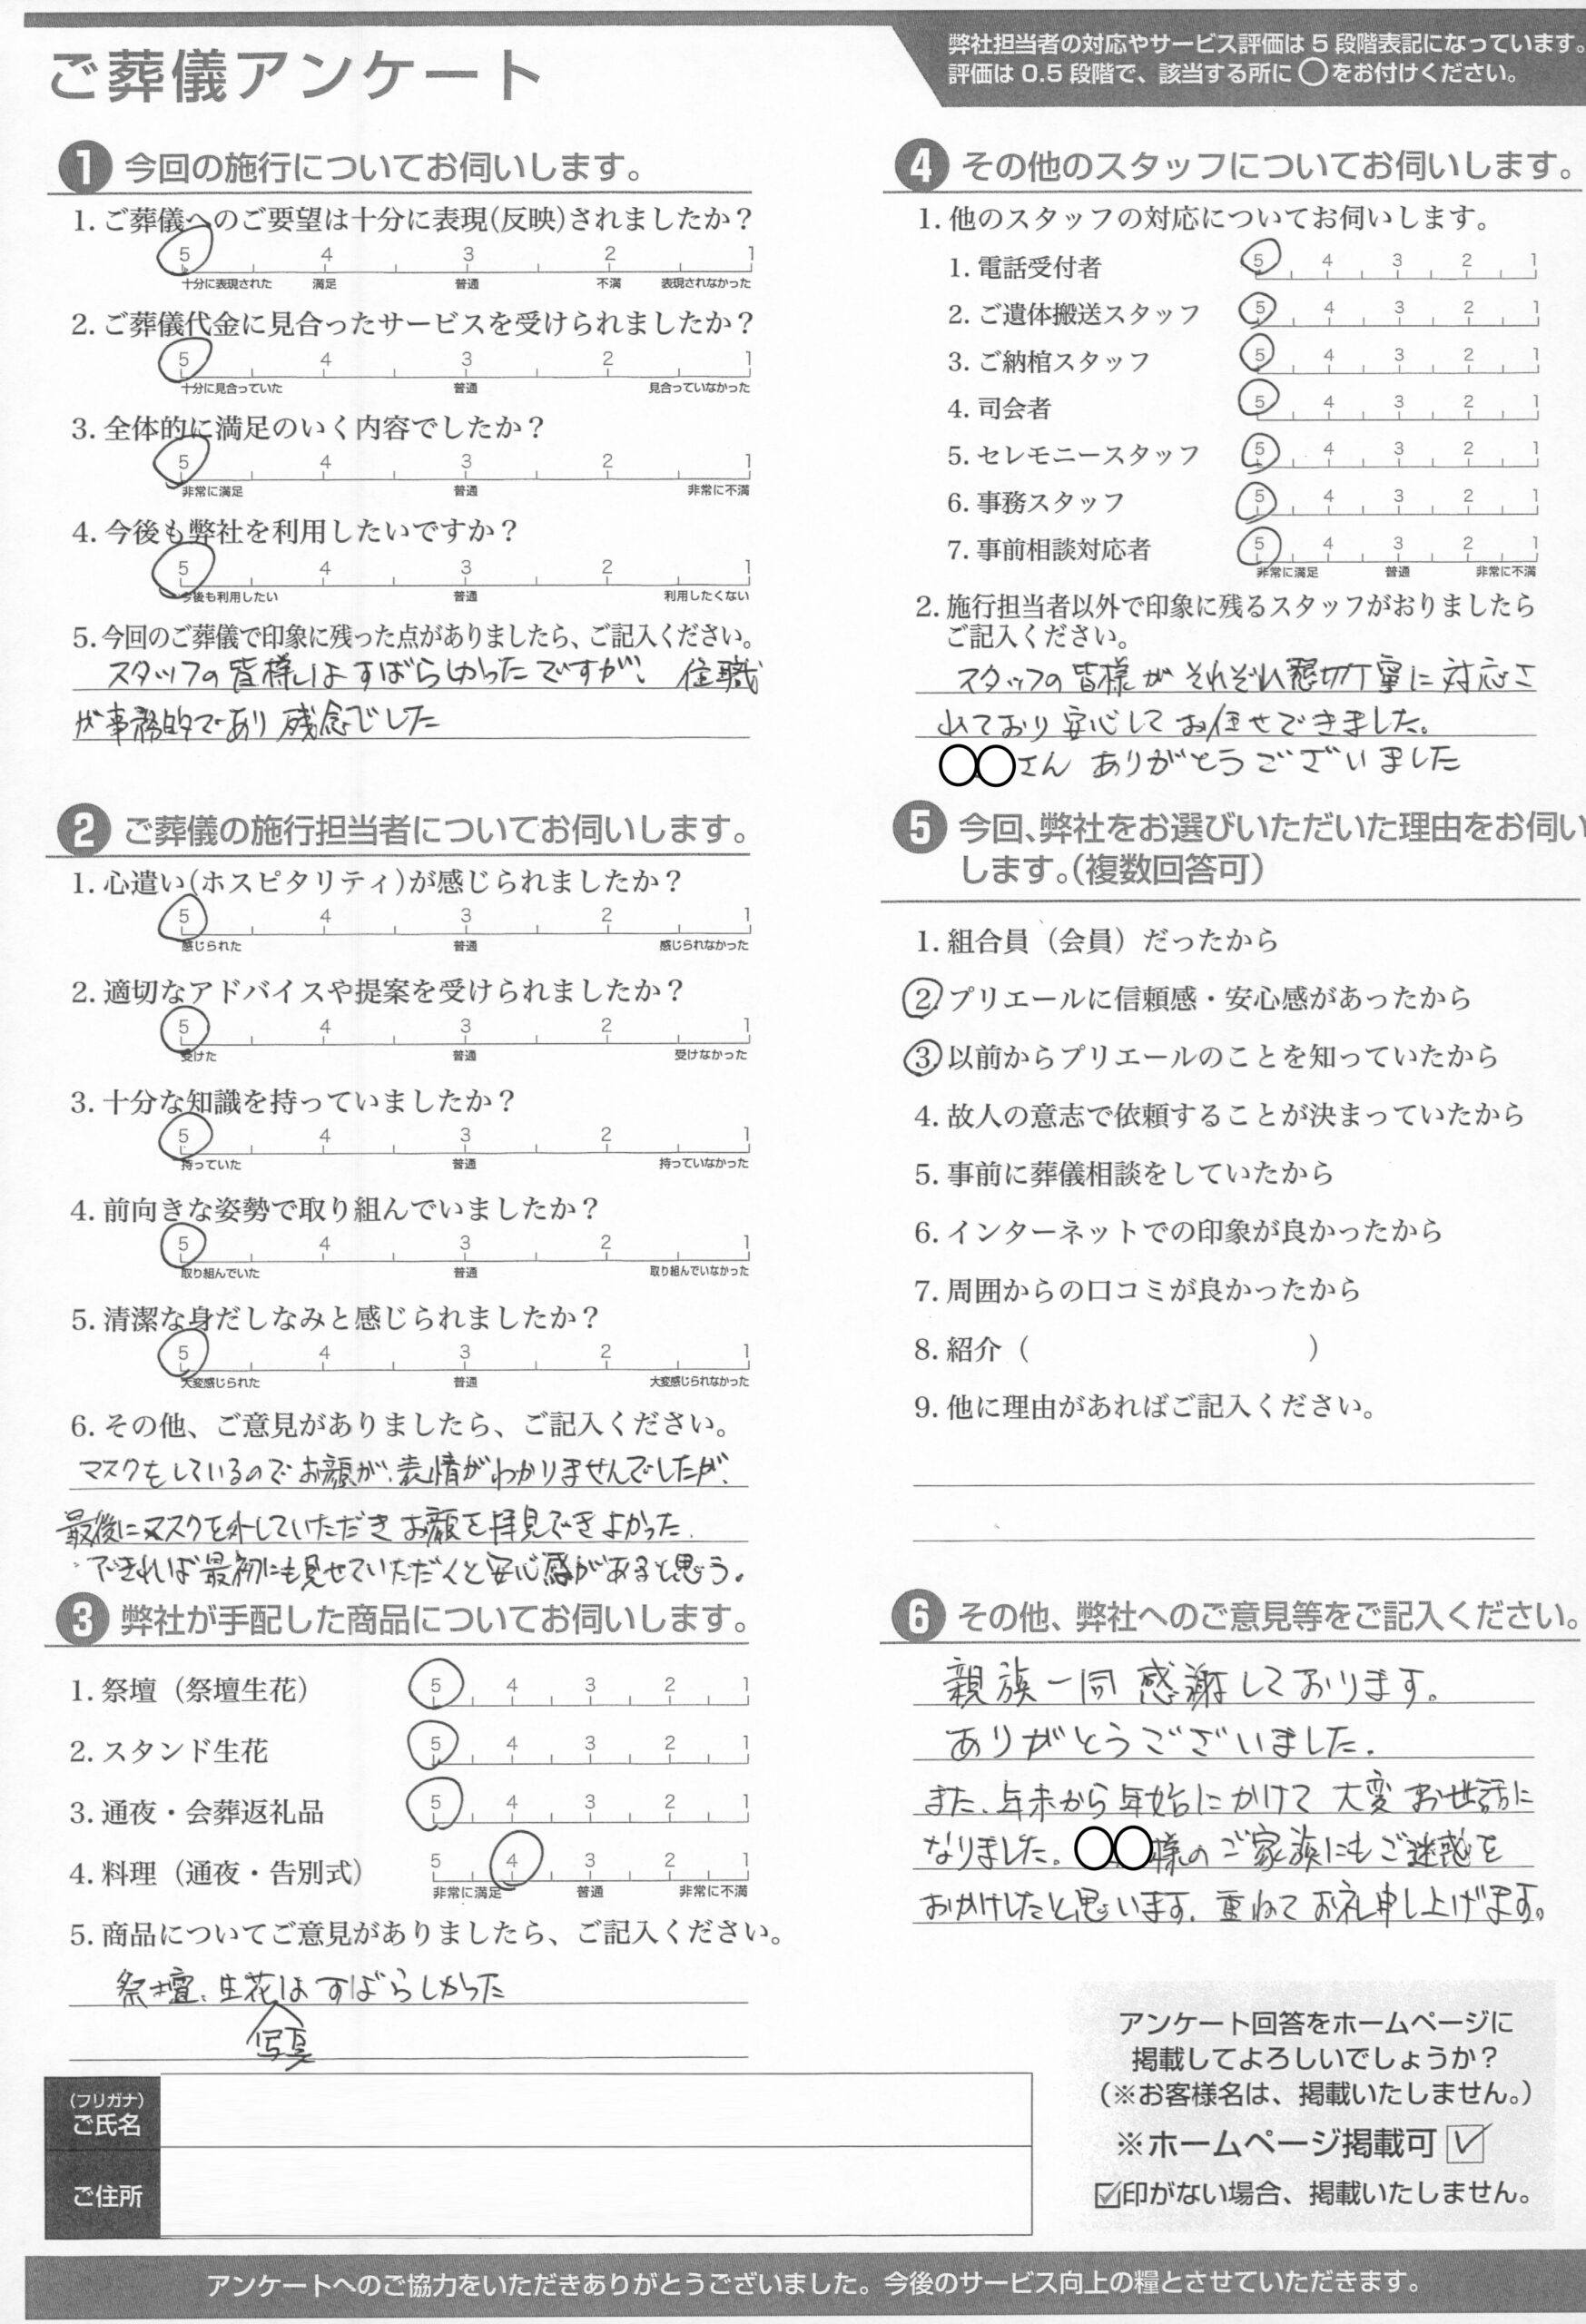 ご葬儀アンケート
弊社担当者の対応やサービス評価は 5 段階表記になっています。
評価は 0.5 段階で、該当する所に ○をお付けください。
1 今回の施行についてお伺いします。
1. ご葬儀へのご要望は十分に表現(反映)されましたか？
5 4 3 2 1
十分に表現された 満足 普通 不満 表現されなかった
2. ご葬儀代金に見合ったサービスを受けられましたか？
5 4 3 2 1
十分に見合っていた 普通 見合っていなかった
3. 全体的に満足のいく内容でしたか？
5 4 3 2 1
非常に満足 普通 非常に不満
4. 今後も弊社を利用したいですか？
5 4 3 2 1
今後も利用したい 普通 利用したくない
5. 今回のご葬儀で印象に残った点がありましたら、ご記入ください。
スタッフの皆様はすばらしかったですが、住職
が事務的であり残念でした
2 ご葬儀の施行担当者についてお伺いします。
1. 心遣い(ホスピタリティ)が感じられましたか？
5 4 3 2 1
感じられた 普通 感じられなかった
2. 適切なアドバイスや提案を受けられましたか？
5 4 3 2 1
受けた 普通 受けなかった
3. 十分な知識を持っていましたか？
5 4 3 2 1
持っていた 普通 持っていなかった
4. 前向きな姿勢で取り組んでいましたか？
5 4 3 2 1
取り組んでいた 普通 取り組んでいなかった
5. 清潔な身だしなみと感じられましたか？
5 4 3 2 1
大変感じられた 普通 大変感じられなかった
6. その他、ご意見がありましたら、ご記入ください。
マスクをしているのでお顔が、表情がわかりませんでしたが、
最後にマスクを外していただきお顔を拝見できよかった.
できれば最初にも見せていただくと安心感があると思う。
3 弊社が手配した商品についてお伺いします。
1. 祭壇（祭壇生花） 5 4 3 2 1
2. スタンド生花 5 4 3 2 1
3. 通夜・会葬返礼品 5 4 3 2 1
4. 料理（通夜・告別式） 5 4 3 2 1
非常に満足 普通 非常に不満
5. 商品についてご意見がありましたら、ご記入ください。
祭壇、生花はすばらしかった
写真
4 その他のスタッフについてお伺いします。
1. 他のスタッフの対応についてお伺いします。
1. 電話受付者 5 4 3 2 1
2. ご遺体搬送スタッフ 5 4 3 2 1
3. ご納棺スタッフ 5 4 3 2 1
4. 司会者 5 4 3 2 1
5. セレモニースタッフ 5 4 3 2 1
6. 事務スタッフ 5 4 3 2 1
7. 事前相談対応者 5 4 3 2 1
非常に満足 普通 非常に不満
2. 施行担当者以外で印象に残るスタッフがおりましたら
ご記入ください。
スタッフの皆様がそれぞれ懇切丁寧に対応さ
れており安心してお任せできました。
○○さん ありがとうございました
5 今回、弊社をお選びいただいた理由をお伺い
します。（複数回答可）
1. 組合員（会員）だったから
2. プリエールに信頼感・安心感があったから
3. 以前からプリエールのことを知っていたから
4. 故人の意志で依頼することが決まっていたから
5. 事前に葬儀相談をしていたから
6. インターネットでの印象が良かったから
7. 周囲からの口コミが良かったから
8. 紹介（ ）
9. 他に理由があればご記入ください。
6 その他、弊社へのご意見等をご記入ください。
親族一同 感謝しております。
ありがとうございました.
また、年末から年始にかけて 大変お世話に
なりました。○○様のご家族にもご迷惑を
おかけしたと思います. 重ねてお礼申し上げます。
アンケート回答をホームページに
掲載してよろしいでしょうか？
（※お客様名は、掲載いたしません。）
※ホームページ掲載可
☑印がない場合、掲載いたしません。
（フリガナ）
ご氏名
ご住所
アンケートへのご協力をいただきありがとうございました。今後のサービス向上の糧とさせていただきます。